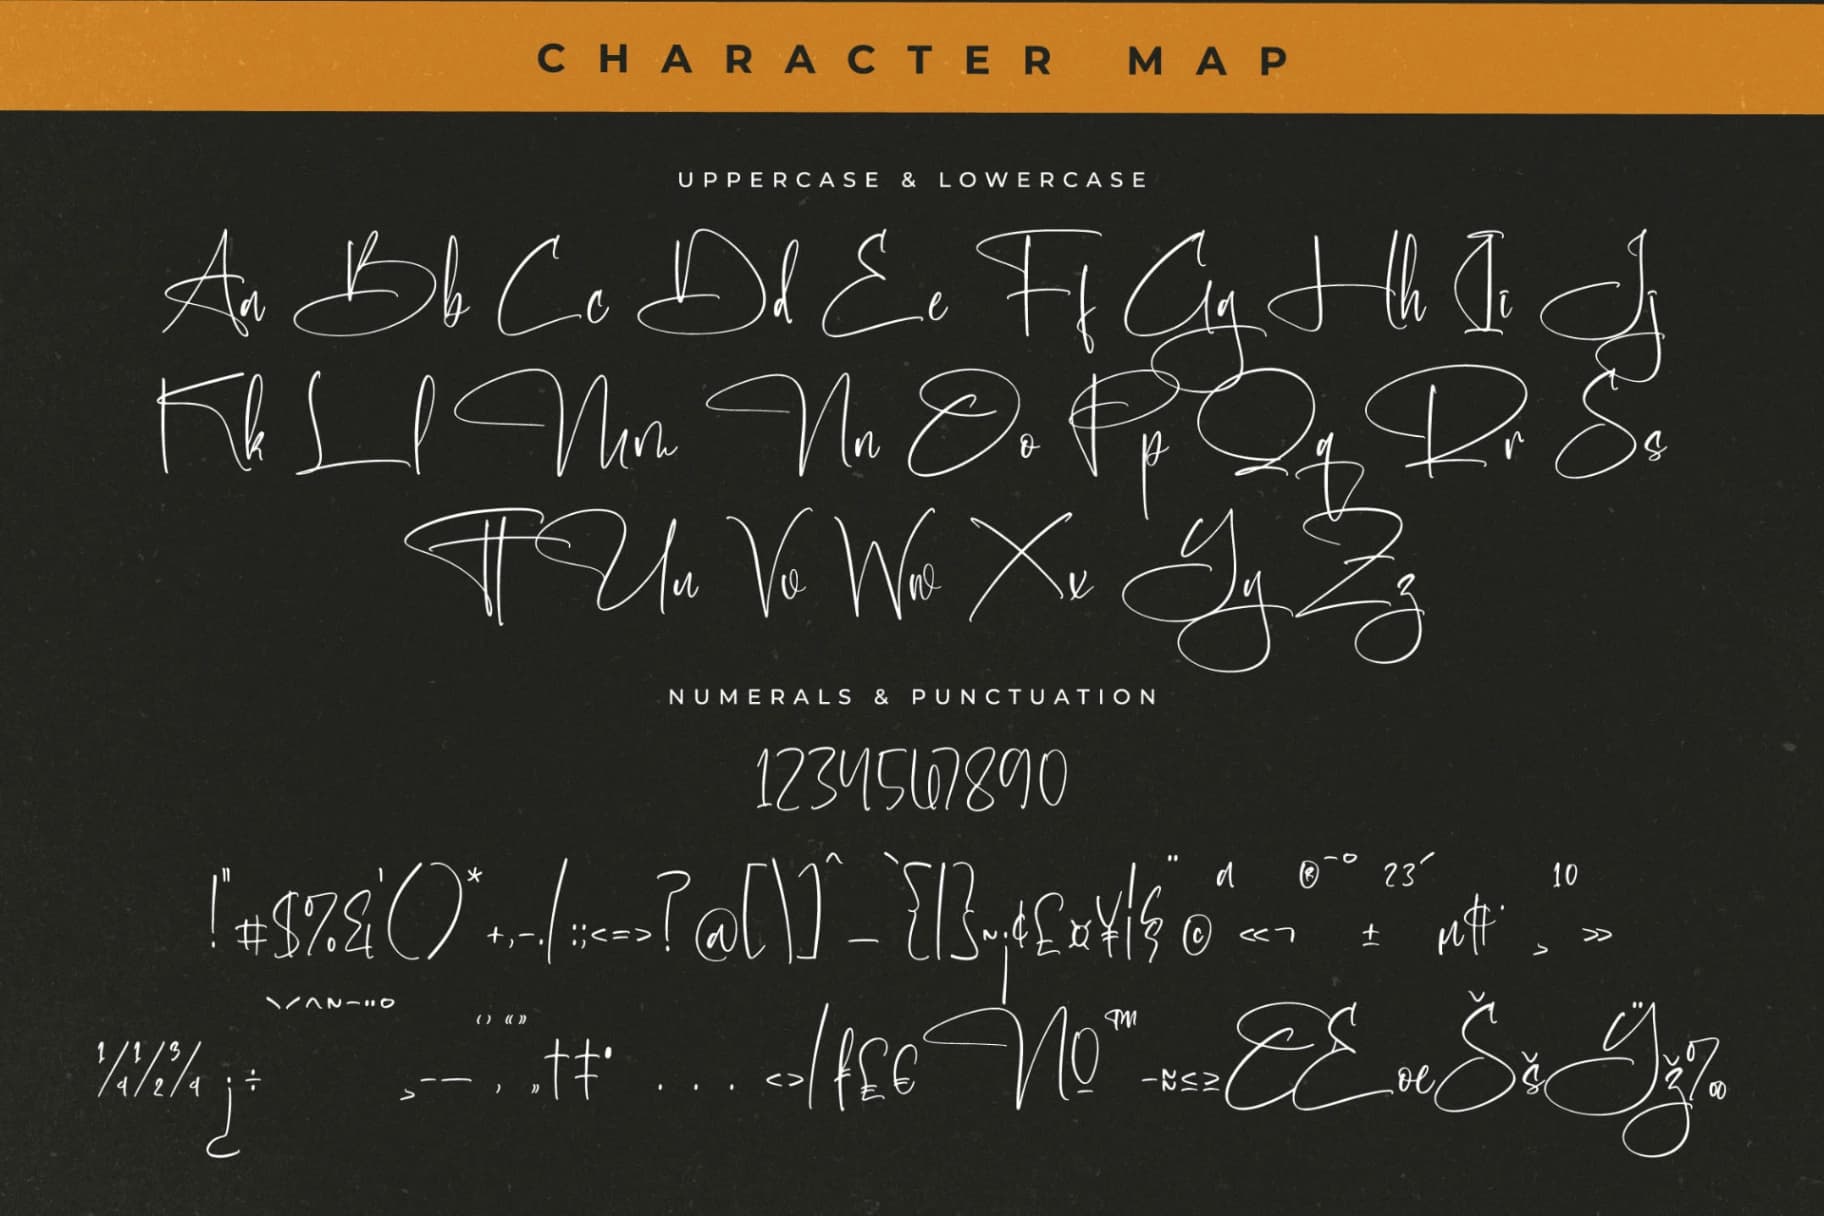 CHARACTER MAP
UPPERCASE & LOWERCASE
Aa Bb Cc Dd Ee Ff Gg Hh Ii Jj
Kk Ll Mm Nn Oo Pp Qq Rr Ss
Tt Uu Vv Ww Xx Yy Zz
NUMERALS & PUNCTUATION
1234567890
!"#$%&'()*+,-./:;<=>?@[\]^_`{|}~¡¢£¤¥¦§¨©ª«¬®¯°±²³´µ¶·¸¹º»
¼½¾¿÷ˋˊˆ˜¯¨˚¸–—‘’‚“”„†‡•...‹›⁄₣₤€№™−≈≤≥ŒEœŠšŸž‰